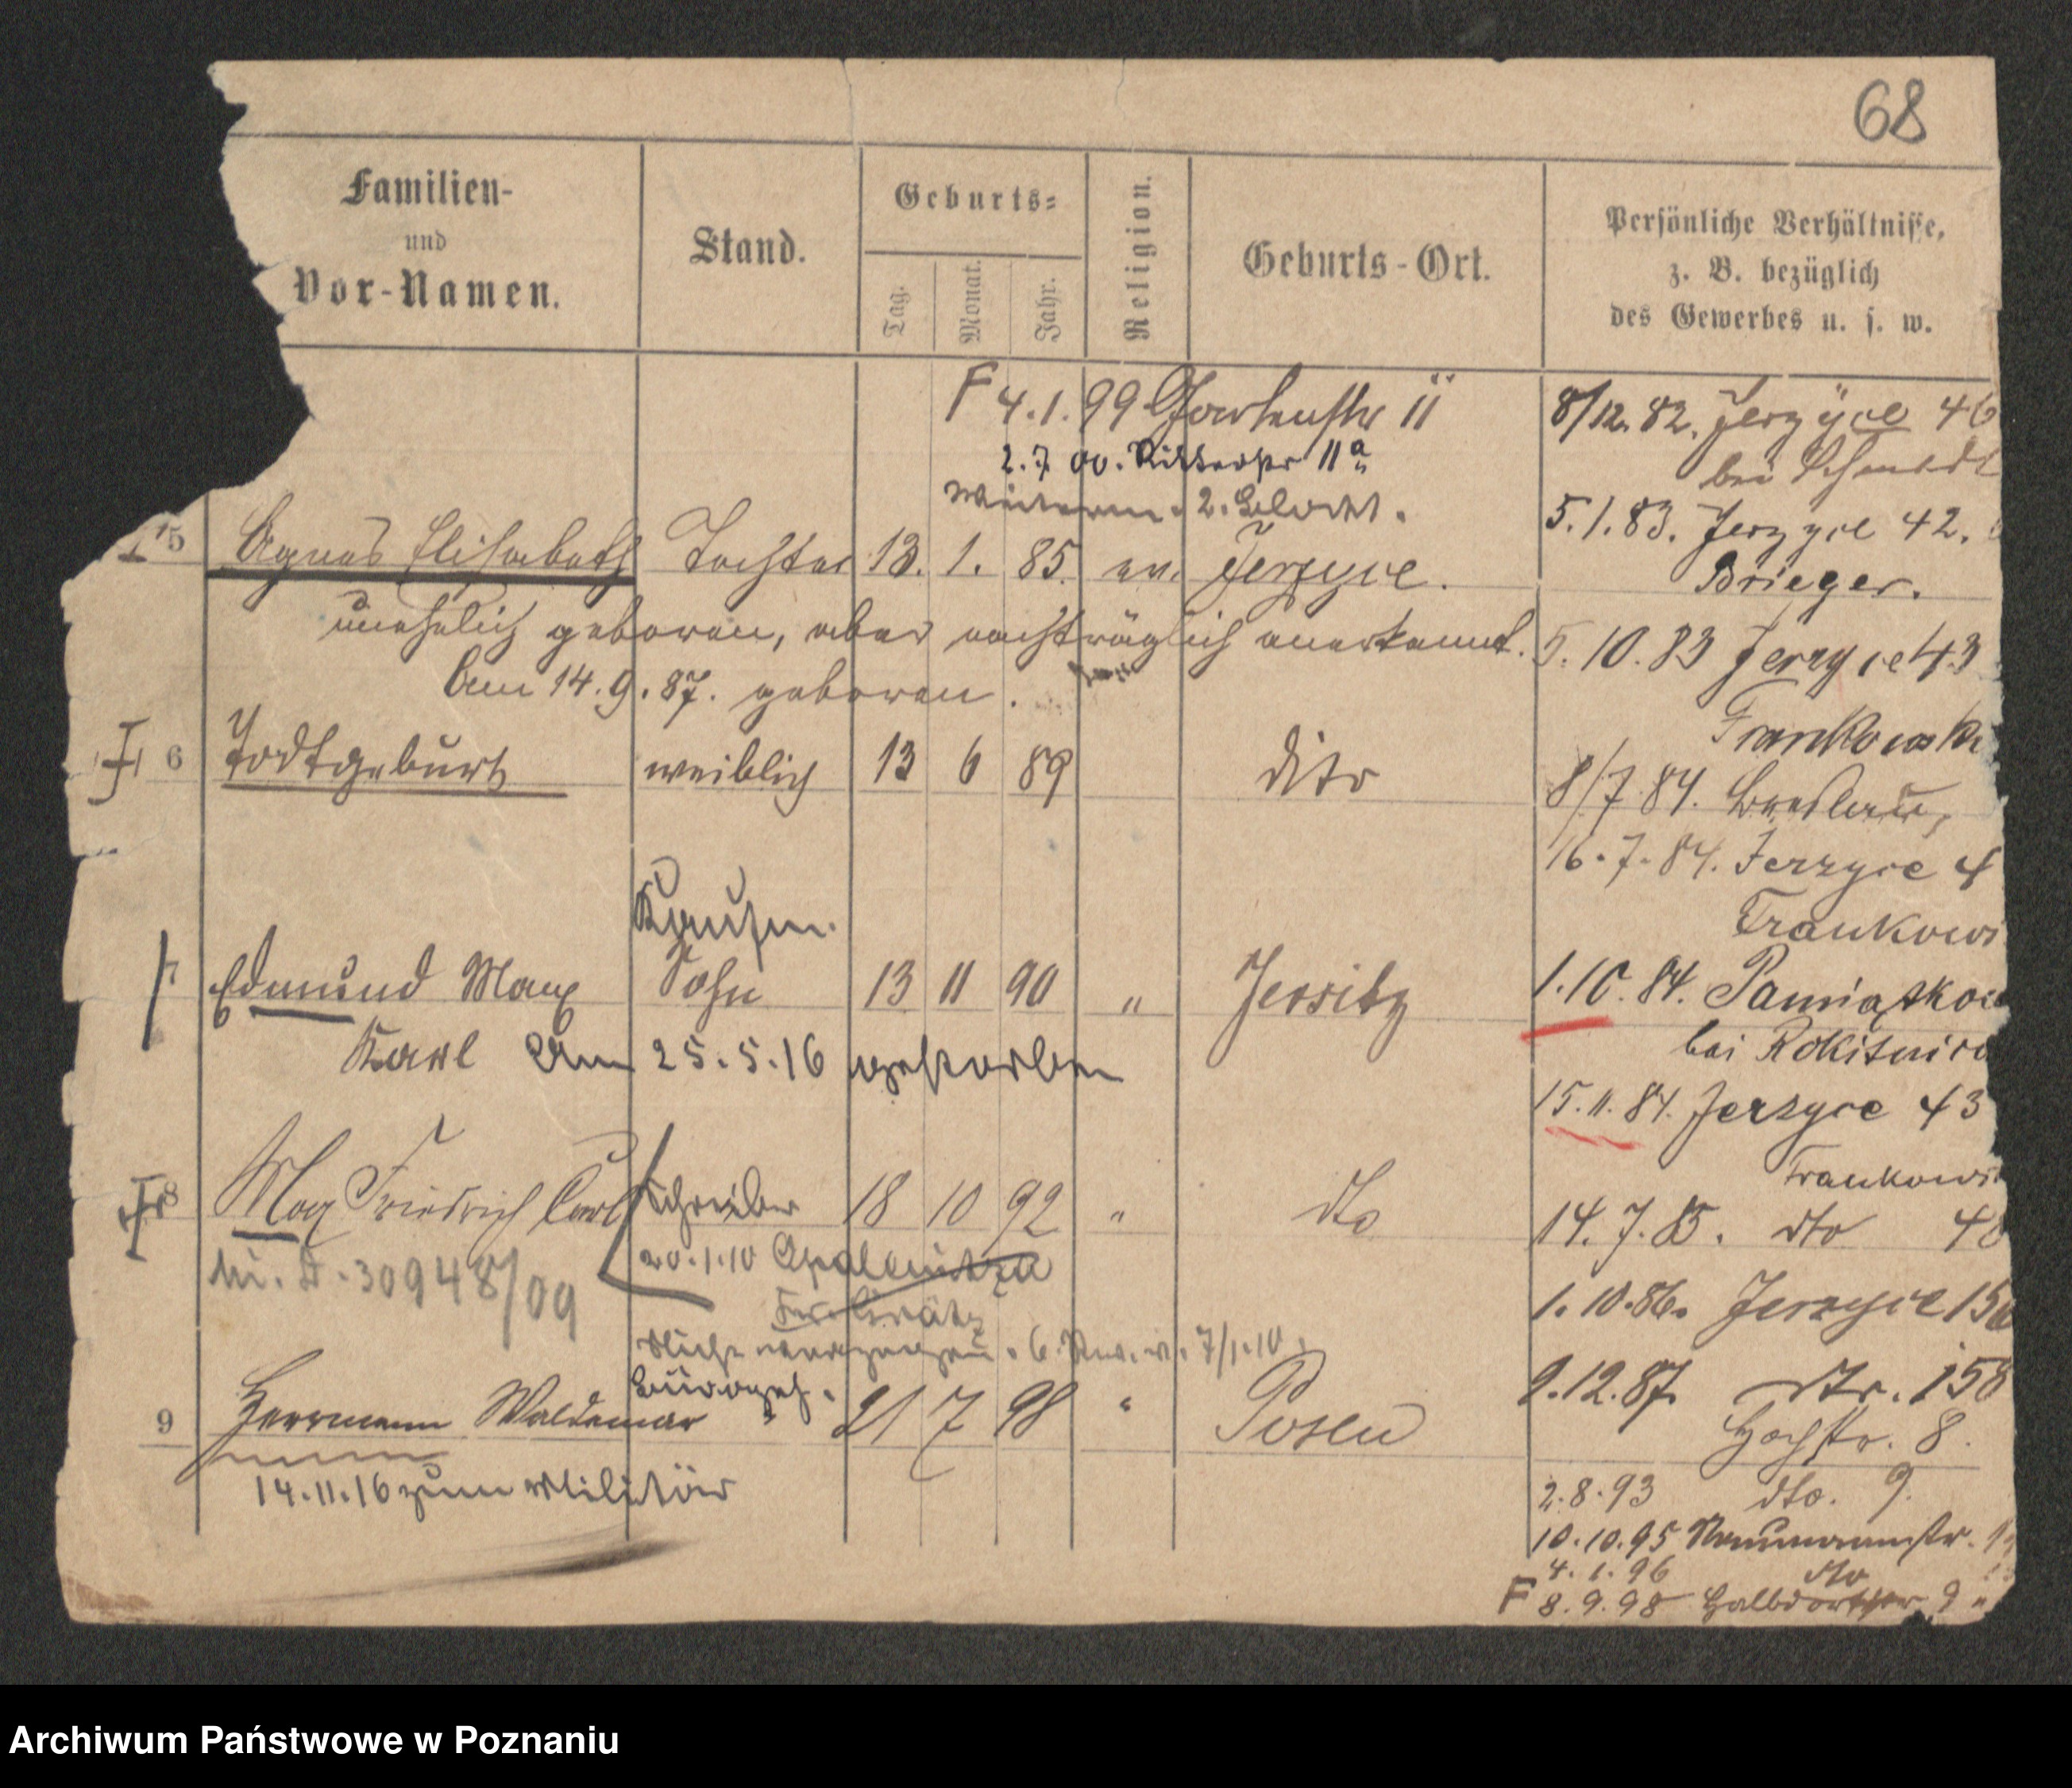 68
Familien-
und
Vor-Namen.
Stand.
Geburts-
Tag.
Monat.
Jahr.
Religion.
Geburts-Ort.
Persönliche Verhältnisse,
z. B. bezüglich
des Gewerbes u. s. w.
F 4.1.99 Gartenstr 11
2.7.00. Ritterstr 11a
8/12. 82. Jerzyce 46
bei Schmidt
5.1.83. Jerzyce 42.
Brieger.
5 Agnes Elisabeth Tochter 13. 1. 85. ev. Jerzyce.
unehelich geboren, aber nachträglich anerkannt.
Am 14.9.87. geboren.
5.10.83 Jerzyce 43
Frankowski
6 Todtgeburt weiblich 13 6 89 dito
8/7 84. Breslau,
16.7.84. Jerzyce 4
Frankowi
Kaufm.
7 Edmund Max Sohn 13 11 90 " Jersitz
Karl Am 25.5.16 gestorben
1.10.84. Pamiątkow
bei Rokitnica
15.11.84. Jerzyce 43
Frankowi
8 Max Friedrich Carl Schreiber 18 10 92 " dto
14.7.85. dto 4
20.1.10 Opalenitza
30948/09
1.10.86. Jerzyce 15
7/1.10
9.12.87. dto. 158
Hochstr. 8.
9 Herrmann Waldemar 21 7 98 " Posen
14.11.16 zum Militär
2.8.93 dto. 9.
10.10.95 Naumannstr.
4.1.96 dto
F 8.9.98 Halbdorfstr 9
Archiwum Państwowe w Poznaniu